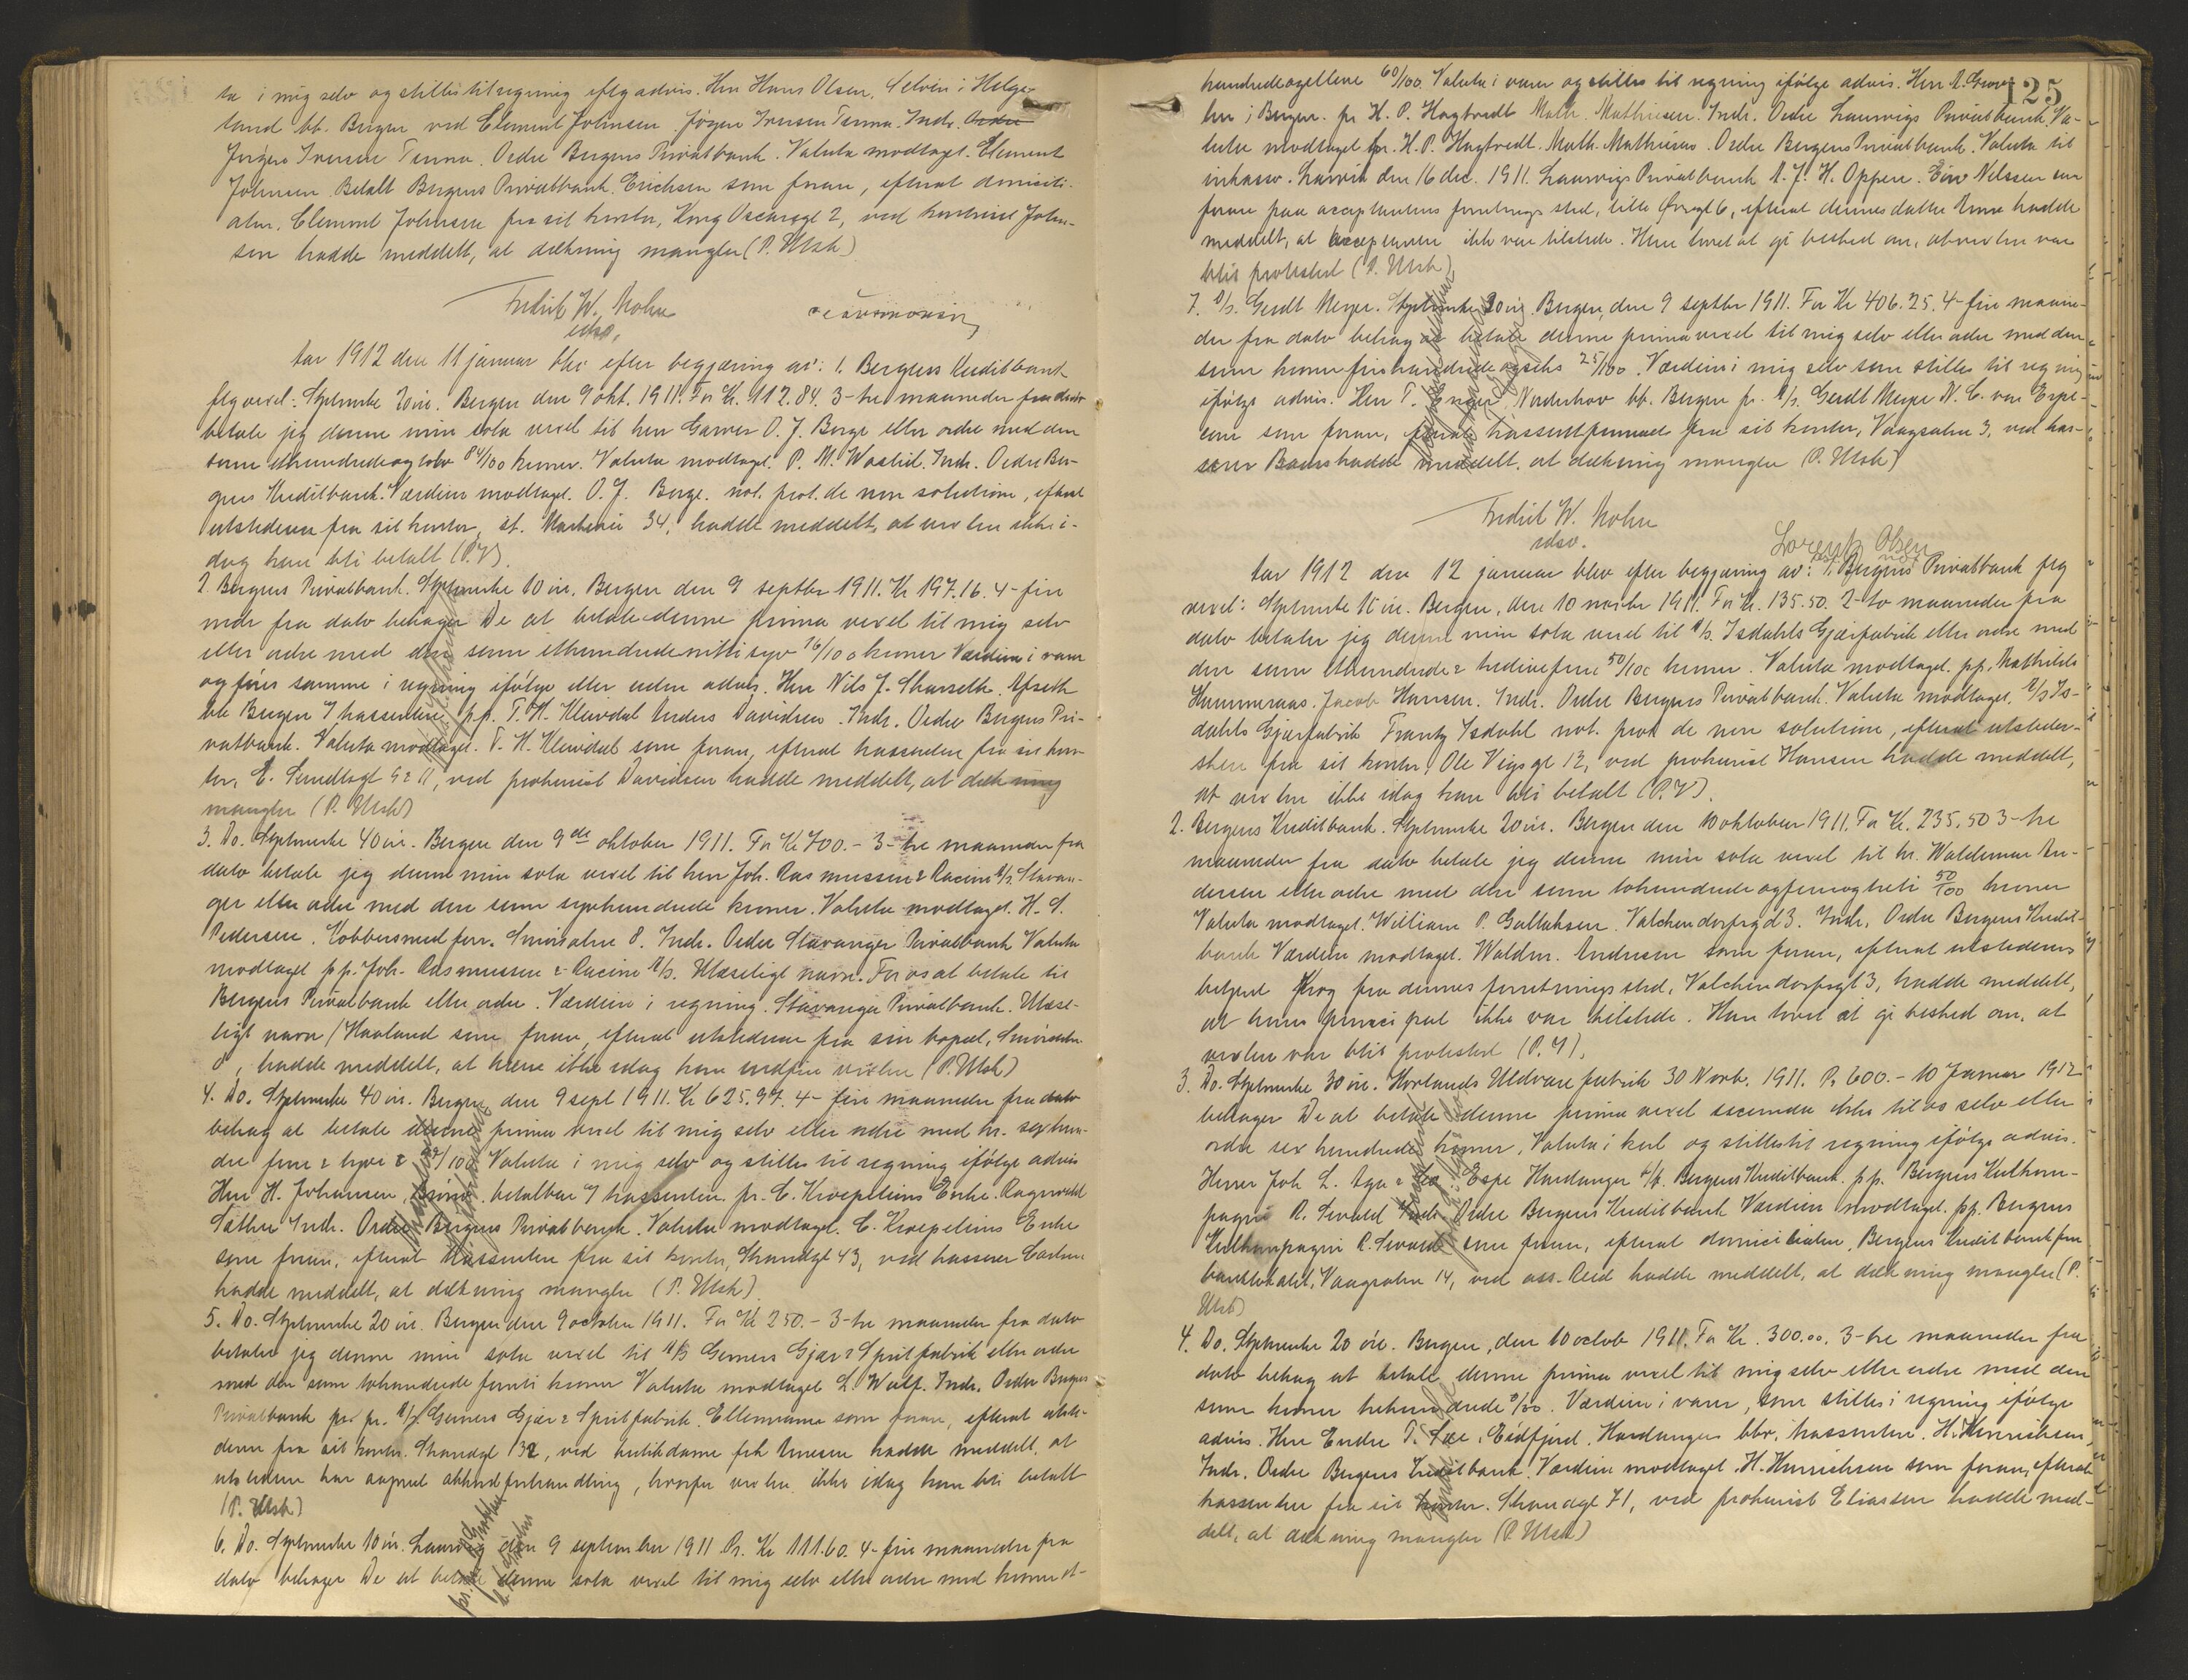 ta i mig selv og stilles til regning efter advis. Herr Hans Olsen, Selvin i Helge-
land bb. Bergen ved Clement Johnsen. Jørgen Iversen Tenna. Indr. Ordre
Jørgen Iversen Tenna. Ordre Bergens Privatbank. Valuta modtaget. Clement
Johnsen. Betalt Bergens Privatbank. Erichsen som foran, efterat domicili-
aten, Clement Johnsen fra sit kontor, Kong Oscarsgt 2, ved kontorist John-
sen hadde meddelt, at dækning mangler (P. Utsk)
Fredrik W. Mohn
edsv.
Aar 1912 den 11 januar blev efter begjæring av: 1. Bergens Kreditbank
flg vexel: Stplmerke 20 øre. Bergen den 9 okt. 1911. For Kr. 112.84. 3-tre maaneder fra dato
betale jeg denne min sola vexel til herr Garver O. J. Berge eller ordre med den
sum ethundredeogtolv 84/100 kroner. Valuta modtaget. P. M. Indr. Ordre Ber-
gens Kreditbank. Værdien modtaget. O. J. Berge. not. prot. de non solutione, efterat
utstederen fra sit kontor, st. Markevei 34, hadde meddelt, at vexlen ikke i-
dag kan bli betalt (P.V).
2. Bergens Privatbank. Stplmerke 10 øre. Bergen den 9 septbr 1911. Kr 197.16. 4-fire
mdr fra dato behager De at betale denne prima vexel til mig selv
eller ordre med den sum ethundredenittisyv 16/100 kroner Værdien i varer
og føres samme i regning ifølge eller uden advis. Herr Nils J.
bb Bergen T kassenten pp. T. H. Kleivdal Anders Davidsen. Indr. Ordre Bergens Pri-
vatbank. Valuta modtaget. T. H. Kleivdal som foran, efterat kassenten fra sit kon-
tor, E. Sundtsgt 9 & 11, ved prokurist Davidsen hadde meddelt, at dækning
mangler (P. Utsk)
3. Do. Stplmerke 40 øre. Bergen den 9de oktober 1911. For Kr 700.- 3-tre maaneder fra
dato betale jeg denne min sola vexel til herr Joh. Rasmussen & Racine A/S. Stavan-
ger eller ordre med den sum syvhundrede kroner. Valuta modtaget. H. S.
Pedersen. Kobbersmed forr. Smörsalm. 8. Indr. Ordre Stavanger Privatbank Valuta
modtaget pp. Joh. Rasmussen & Racine A/S. Ulæseligt navn. For os at betale til
Bergens Privatbank eller ordre. Værdien i regning. Stavanger Privatbank. Ulæse-
ligt navn / Haaland som foran, efterat utstederen fra sin bopæl,
8, hadde meddelt, at han ikke idag kan indfri vexlen (P. Utsk)
4. Do. Stplmerke 40 øre. Bergen, den 9 sept 1911. Kr 625.97. 4- fire maaneder fra dato
behag at betale denne prima vexel til mig selv eller ordre med kr. sexhun-
dre fem & tyve & 97/100. Valuta i mig selv og stilles til regning ifølge advis
Herr H. Johansen, betalbar T kassenten. pr. C. Kroepeliens Enke. Ragnvald
Sæthre Indr. Ordre Bergens Privatbank. Valuta modtaget. C. Kroepeliens Enke
som foran, efterat kassenten fra sit kontor, Strandgt 43, ved kasserer
hadde meddelt, at dækning mangler (P. Utsk).
5. Do. Stplmerke 20 øre. Bergen den 9 octobr 1911. For Kr 250.- 3-tre maaneder fra dato
betaler jeg denne min sola vexel til A/S Gerners Gjær & Spritfabrik eller ordre
med den sum tohundrede femti kroner Valuta modtaget L. Wulf. Indr. Ordre Bergens
Privatbank pr. A/S Gerners Gjær & Spritfabrik. Ellemann som foran, efterat utste-
deren fra sit kontor. Strandgt 132, ved butikdame frk hadde meddelt, at
utstederen har aapnet akkordforhandling, hvorfor vexlen ikke idag kan bli betalt
(P. Utsk)
6. Do. Stplmerke 10 øre. Laurvig den 9 september 1911. Pr. Kr 111.60. 4-fire maaneder fra
dato behager De at betale denne sola vexel til mig selv eller ordre med kroner et-
125
hundredeogelleve 60/100. Valuta i varer og stilles til regning ifølge advis. Herr A.
i Bergen. pr H. P. Hagtvedt Math. Mathiesen. Indr. Ordre Laurvigs Privatbank. Va-
luta modtaget for. H. P. Hagtvedt. Math. Mathiesen. Ordre Bergens Privatbank. Valuta til
inkasso. Larvik den 16 dec. 1911. Laurvigs Privatbank A. J. H. Oppen. Nilssen som
foran paa acceptantens forretningssted, lille Øvregt 6, efterat dennes datter hadde
meddelt, at acceptanten ikke var tilstede. Hun lovet at gi besked om, at vexlen var
blit protestert (P. Utsk)
7. A/S. Gerdt Meyer. Stplmerke 20 øre. Bergen, den 9 septbr 1911. For Kr 406.25. 4-fire maane-
der fra dato behag at betale denne prima vexel til mig selv eller ordre med den
sum kroner firehundrede og seks 25/100. Værdien i mig selv som stilles til regning
ifølge advis. Herr T. Enger, Norderhov bb. Bergen pr. A/S. Gerdt Meyer N. C. von Erpe-
com som foran, kassenten fra sit kontor, Vaagsalm 3, ved kas-
serer hadde meddelt, at dækning mangler (P. Utsk)
Fredrik W. Mohn
edsv.
Lorentz Olsen
Aar 1912 den 12 januar blev efter begjæring av: 1. Bergens Privatbank flg
vexel: Stplmerke 10 øre. Bergen, den 10 novbr 1911. For Kr. 135.50. 2-to maaneder fra
dato betaler jeg denne min sola vexel til A/S. Isdahls Gjærfabrik eller ordre med
den sum ethundrede & tredivefem 50/100 kroner. Valuta modtaget. pp. Mathilde
Hammeraas. Jacob Hansen. Indr. Ordre Bergens Privatbank. Valuta modtaget. A/S Is-
dahls Gjærfabrik Frantz Isdahl not. prot de non solutione, efterat utsteder-
sken fra sit kontor, Ole Vigsgt 12, ved prokurist Hansen hadde meddelt,
at vexlen ikke idag kan bli betalt (P.V).
2. Bergens Kreditbank. Stplmerke 20 øre. Bergen den 10 oktober 1911. For Kr. 235.50 3-tre
maaneder fra dato betale jeg denne min sola vexel til hr. Waldemar An-
dersen eller ordre med den sum tohundrede og femogtreti 50/100 kroner
Valuta modtaget. William P. Gullaksen. Valchendorfsgd 3. Indr. Ordre Bergens Kredit-
bank Værdien modtaget. Waldm. Andersen som foran, efterat utstederens
betjent Krog fra dennes forretningssted, Valchendorfsgt 3, hadde meddelt,
at hans principal ikke var tilstede. Han lovet at gi besked om, at
vexlen var blit protestert (P.V),
3. Do. Stplmerke 30 øre. Horlands Uldvarefabrik 30 Novb. 1911. Pr 600.- 10 Januar 1912
behager De at betale denne prima vexel secunda ikke til os selv eller
ordre sex hundrede kroner, Valuta i kul og stilles til regning ifølge advis.
Herrer Joh L. Aga & Co. Espe Hardanger A/K. Bergens Kreditbank. pp. Bergens Kulkom-
pagni R. Sevald Indr. Ordre Bergens Kreditbank Værdien modtaget. pp. Bergens
Kulkompagni R. Sevald som foran, efterat domiciliaten, Bergens Kreditbank fra
banklokalet, Vaagsalm 14, ved ass. Reid hadde meddelt, at dækning mangler (P.
Utsk)
4. Do. Stplmerke 20 øre. Bergen, den 10 octob 1911. For Kr. 300.00. 3-tre maaneder fra
dato behag at betale denne prima vexel til mig selv eller ordre med den
sum kroner trehundrede 0/00. Værdien i varer, som stilles i regning ifølge
advis. Herr Endre T. Sæe, Eidfjord, Hardanger bbr. kassenten. H. Hinrichsen,
Indr. Ordre Bergens Kreditbank. Værdien modtaget. H. Hinrichsen som foran, efterat
kassenten fra sit kontor. Strandgt 71, ved prokurist Eliassen hadde med-
delt, at dækning mangler (P. Utsk)